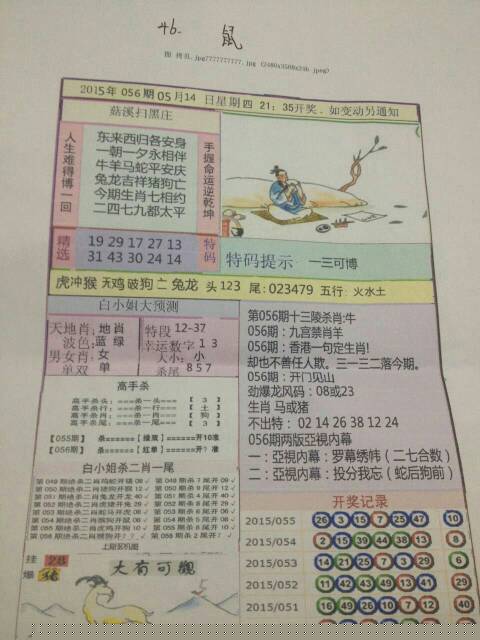 46. 鼠
2015年 056期 05月14 日星期四 21:35开奖. 如变动另通知
菇溪扫黑庄
人生难得博一回
东来西归各安身
一朝一夕永相伴
牛羊马蛇平安庆
兔龙吉祥猪狗亡
今期生肖七相约
二四七九都太平
手握命运逆乾坤
精选
19 29 17 27 13
31 43 30 24 14
特码
特码提示 一三可博
虎冲猴 天鸡破狗亡 兔龙 头123 尾:023479 五行:火水土
白小姐大预测
天地肖:地肖
波色:蓝 绿
男女肖:女
单双 单
特段 12-37
幸运数字 1 3
大小:小
杀尾 8 5 7
高手杀
高手杀头:===杀一头===【 3 】
高手杀行:===杀一行===【 土 】
高手杀肖:===杀一肖===【 狗 】
高手杀尾:===杀一尾===【 3 】
【055期】 杀======【绿双】======开10准
【056期】 杀======【红单】======开? 准
白小姐杀二肖一尾
第056期十三陵杀肖:牛
056期:九宫禁肖羊
056期:香港一句定生肖!
却也不善任人欺。三一三二落今期。
056期:开门见山
劲爆龙风码:08或23
生肖 马或猪
不出特: 02 14 26 38 12 24
056期两版亞視内幕
一:亞視内幕:罗幕绣帏(二七合数)
二:亞視内幕:投分我忘(蛇后狗前)
开奖记录
2015/055 26 3 15 7 25 47 10
2015/054 2 15 39 44 38 13
2015/053 14 21 25 7 3 29 6
2015/052 11 42 43 49 13 41 29
2015/051 16 49
挂爆
28
猪
大有可觀